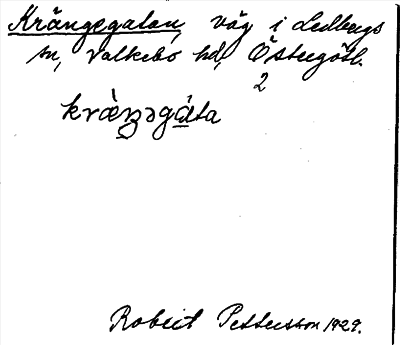 Krängegatan, väg i Ledbergs
sn, Valkebo hd, Östergötl.
2
kràŋəgáta
Robert Pettersson 1929.